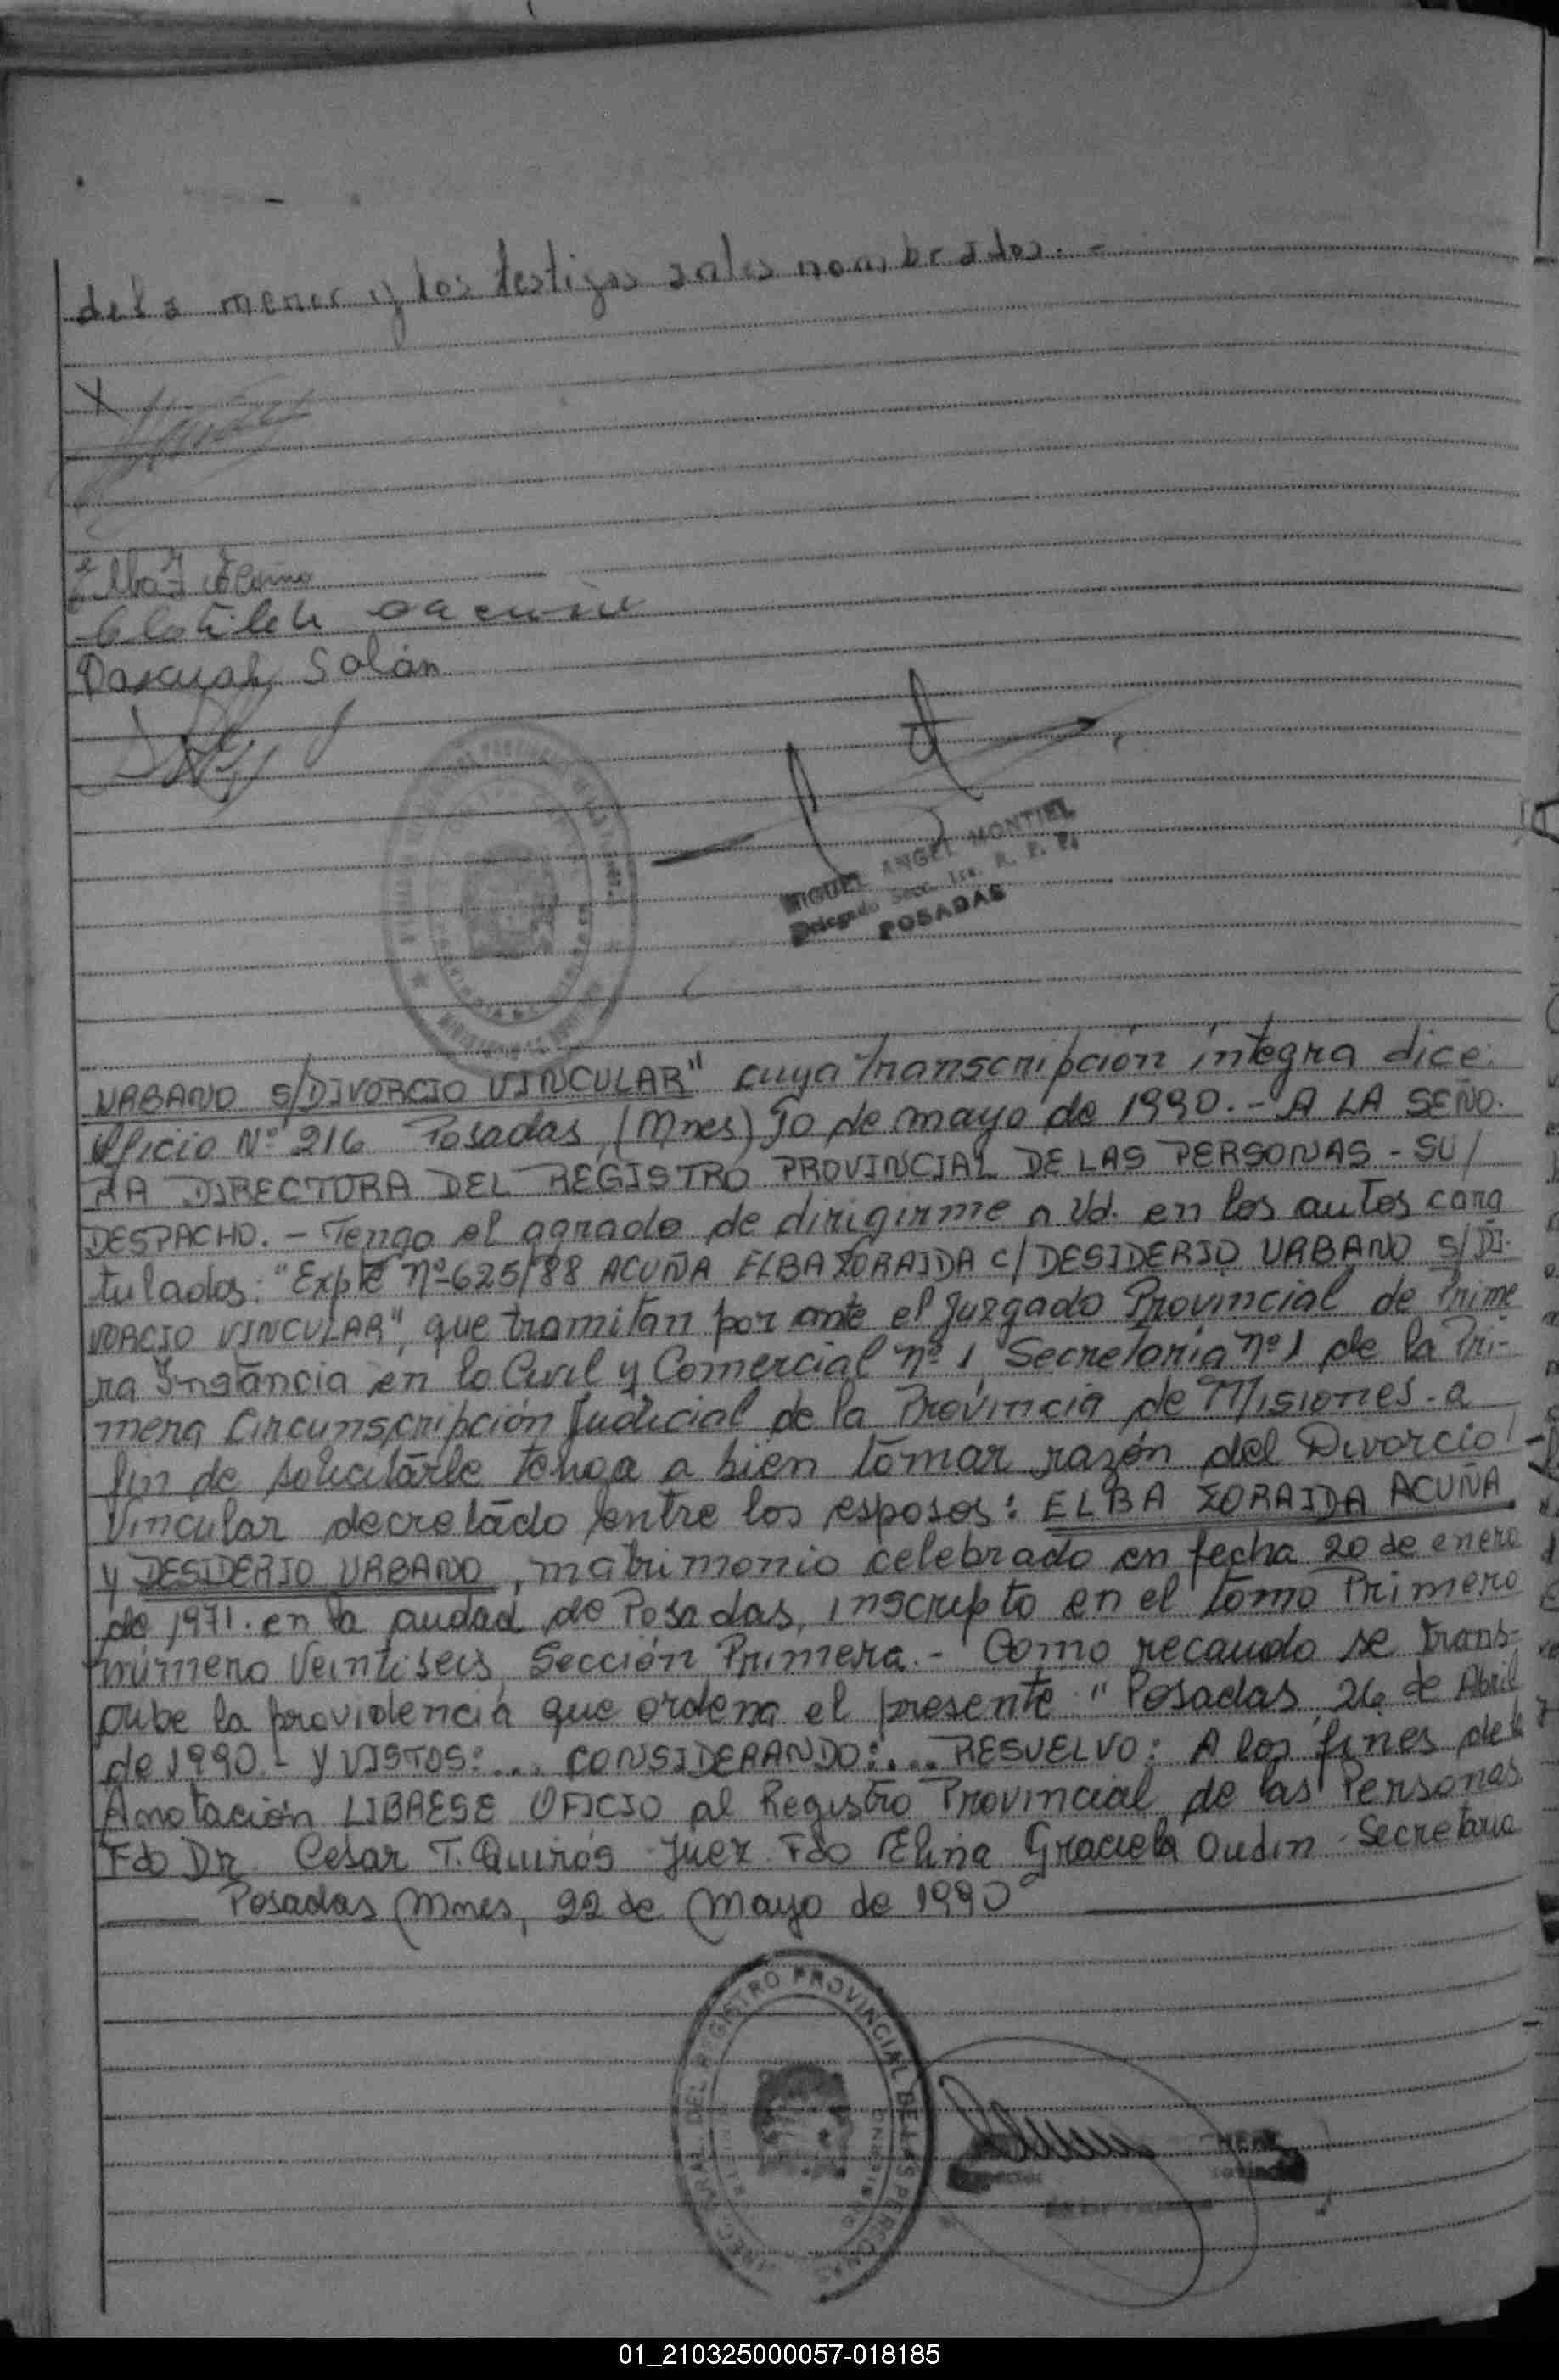 dela menor y los testigos antes nombrados. -
Elba Z Acuña
Clotilde
Pascual Solán
MIGUEL ANGEL MONTIEL
Delegado Secc. 1ra. R. P. P.
POSADAS
URBANO S/DIVORCIO VINCULAR" cuya transcripción íntegra dice:
Oficio Nº 216 Posadas, (Mnes) 10 de mayo de 1990. - A LA SEÑO.
RA DIRECTORA DEL REGISTRO PROVINCIAL DE LAS PERSONAS - SU /
DESPACHO. - Tengo el agrado de dirigirme a Ud. en los autos cara
tulados: "Expte nº 625/88 ACUÑA ELBA ZORAIDA C/ DESIDERIO URBANO S/DI-
VORCIO VINCULAR", que tramitan por ante el Juzgado Provincial de Prime
ra Instancia en lo Civil y Comercial nº 1, Secretaría nº 1 de la Pri-
mera Circunscripción Judicial de la Provincia de Misiones - a
fin de solicitarle tenga a bien tomar razón del Divorcio
Vincular decretado entre los esposos: ELBA ZORAIDA ACUÑA
y DESIDERIO URBANO, matrimonio celebrado en fecha 20 de enero
de 1971. en la ciudad de Posadas, inscripto en el tomo Primero
número Veintiseis, Sección Primera. - Como recaudo se trans-
cribe la providencia que ordena el presente: "Posadas, 26 de Abril
de 1990 - Y VISTOS: ... CONSIDERANDO: ... RESUELVO: A los fines de la
Anotación LIBRESE OFICIO al Registro Provincial de las Personas
Fdo Dr. Cesar T. Quirós - Juez Fdo Elina Graciela Oudin - Secretaria
Posadas Mnes, 22 de Mayo de 1990
DIREC. GRAL. DEL REGISTRO PROVINCIAL DE LAS PERSONAS
01_210325000057-018185